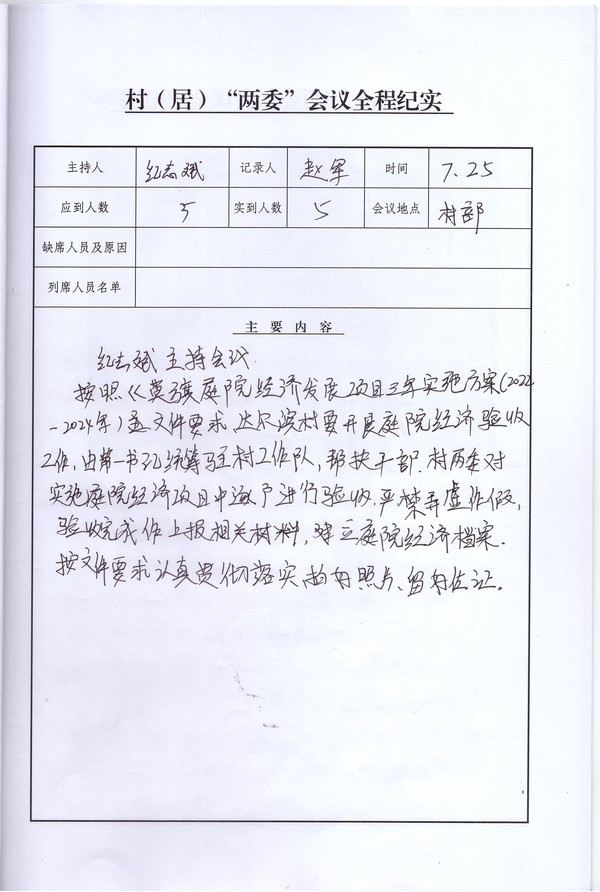 村（居）“两委”会议全程纪实
主持人 红志斌 记录人 赵军 时间 7.25
应到人数 5 实到人数 5 会议地点 村部
缺席人员及原因
列席人员名单
主要内容
红志斌主持会议.
按照《莫旗庭院经济发展项目三年实施方案(2022
-2024年)》文件要求,达尔滨村要开展庭院经济验收
工作,由第一书记统筹驻村工作队,帮扶干部.村两委对
实施庭院经济项目中逐户进行验收.严禁弄虚作假,
验收完成作上报相关材料,建立庭院经济档案.
按文件要求认真贯彻落实,拍好照片、留好佐证。